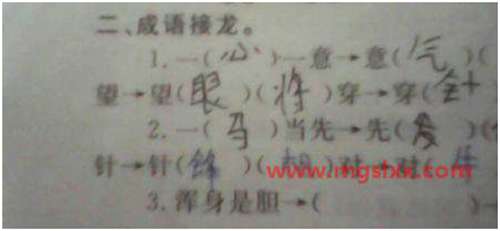 二、成语接龙。
1.一(心)一意→意(气)(
望→望(眼)(将)穿→穿(针
2.一(马)当先→先(发)(
针→针(锋)(相)对→对(牛
www.mgslxx.com
3.浑身是胆→( )